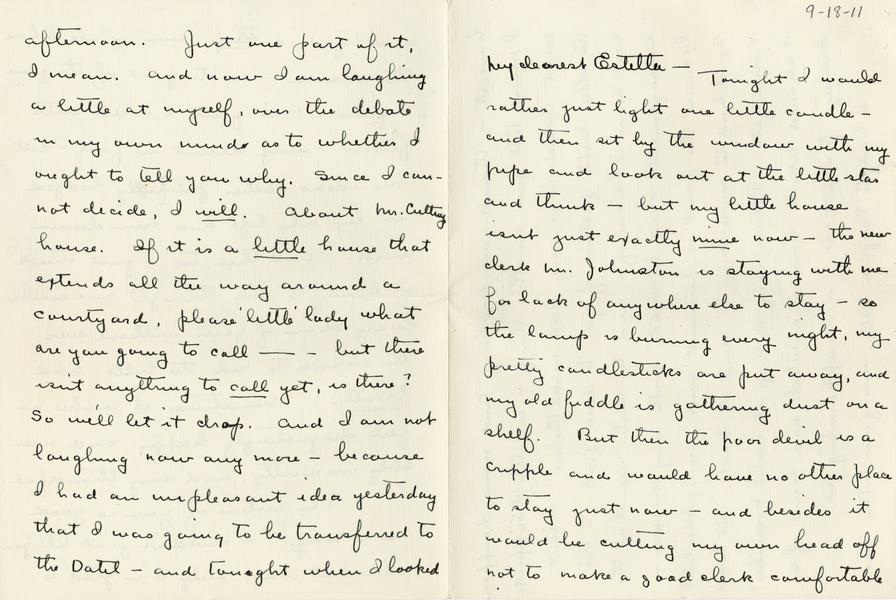 9-18-11
My dearest Estella —
Tonight I would
rather just light one little candle —
and then sit by the window with my
pipe and look out at the little star
and think — but my little house
isnt just exactly mine now — the new
clerk Mr. Johnston is staying with me
for lack of anywhere else to stay — so
the lamp is burning every night, my
pretty candlesticks are put away, and
my old fiddle is gathering dust on a
shelf. But then the poor devil is a
cripple and would have no other place
to stay just now — and besides it
would be cutting my own head off
not to make a good clerk comfortable
afternoon. Just one part of it,
I mean. And now I am laughing
a little at myself, over the debate
in my own minds as to whether I
ought to tell you why. Since I can-
not decide, I will. About Mr. Cutting
house. If it is a little house that
extends all the way around a
courtyard, please 'little' lady what
are you going to call — - but there
isn't anything to call yet, is there?
So we'll let it drop. And I am not
laughing now any more — because
I had an unpleasant idea yesterday
that I was going to be transferred to
the Datil — and tonight when I looked